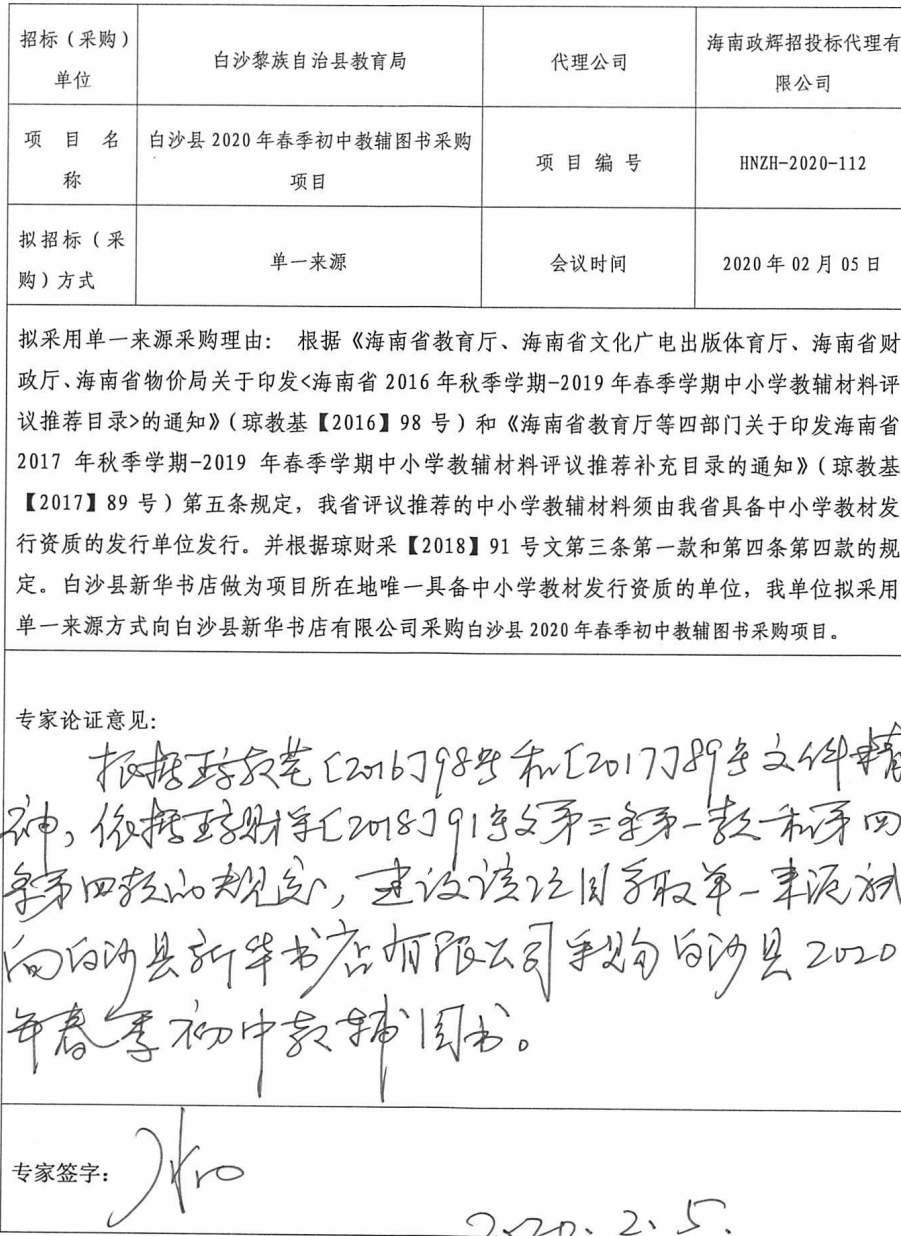 招标（采购）单位 白沙黎族自治县教育局 代理公司 海南政辉招投标代理有限公司
项目名称 白沙县2020年春季初中教辅图书采购项目 项目编号 HNZH-2020-112
拟招标（采购）方式 单一来源 会议时间 2020年02月05日
拟采用单一来源采购理由： 根据《海南省教育厅、海南省文化广电出版体育厅、海南省财
政厅、海南省物价局关于印发<海南省2016年秋季学期-2019年春季学期中小学教辅材料评
议推荐目录>的通知》（琼教基【2016】98号）和《海南省教育厅等四部门关于印发海南省
2017年秋季学期-2019年春季学期中小学教辅材料评议推荐补充目录的通知》（琼教基
【2017】89号）第五条规定，我省评议推荐的中小学教辅材料须由我省具备中小学教材发
行资质的发行单位发行。并根据琼财采【2018】91号文第三条第一款和第四条第四款的规
定。白沙县新华书店做为项目所在地唯一具备中小学教材发行资质的单位，我单位拟采用
单一来源方式向白沙县新华书店有限公司采购白沙县2020年春季初中教辅图书采购项目。
专家论证意见：
根据琼教基[2016]98号和[2017]89号文件精
神，依据琼财采[2018]91号文第三条第一款和第四
条第四款的规定，建议该项目采取单一来源式
向白沙县新华书店有限公司采购白沙县2020
年春季初中教辅图书。
专家签字：
2020.2.5.